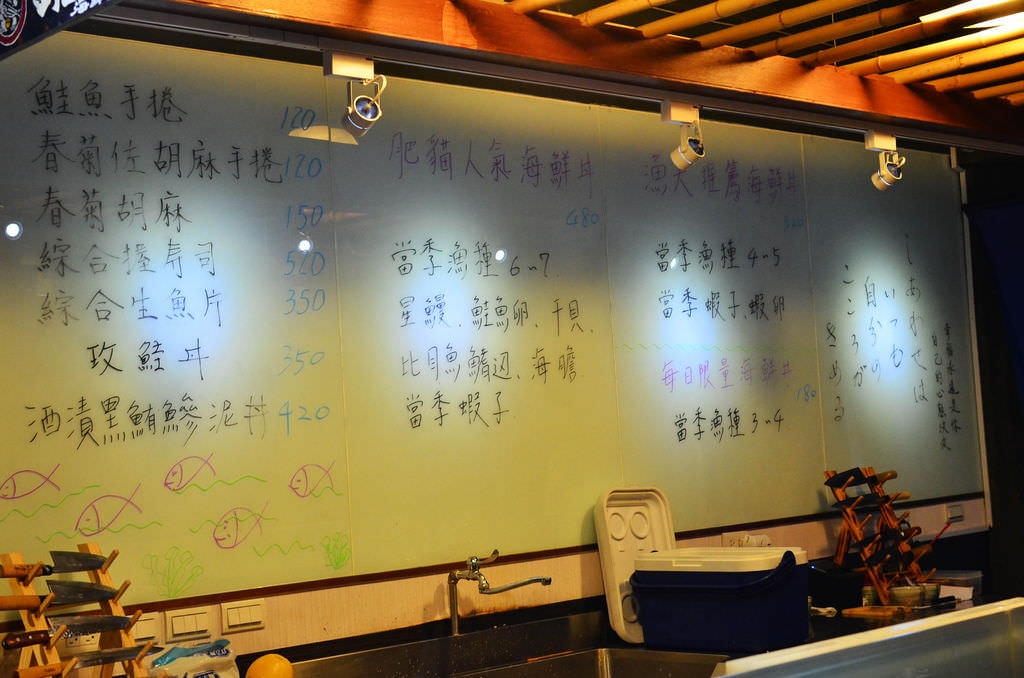 鮭魚手捲 120
春菊佐胡麻手捲 120
春菊胡麻 150
綜合握寿司 520
綜合生魚片 350
玫鮭丼 350
酒漬黑鮪鰺泥丼 420
肥貓人氣海鮮丼
480
當季漁種 6~7.
星鰻、鮭魚卵、干貝、
比目魚鰭辺、海膽.
當季蝦子.
漁夫推薦海鮮丼
320
當季漁種 4~5
當季蝦子、蝦卵
每日限量海鮮丼
180
當季漁種 3~4
しあわせは
いつも
自分の
こころが
きめる
幸福永遠是你
自己的心態決定